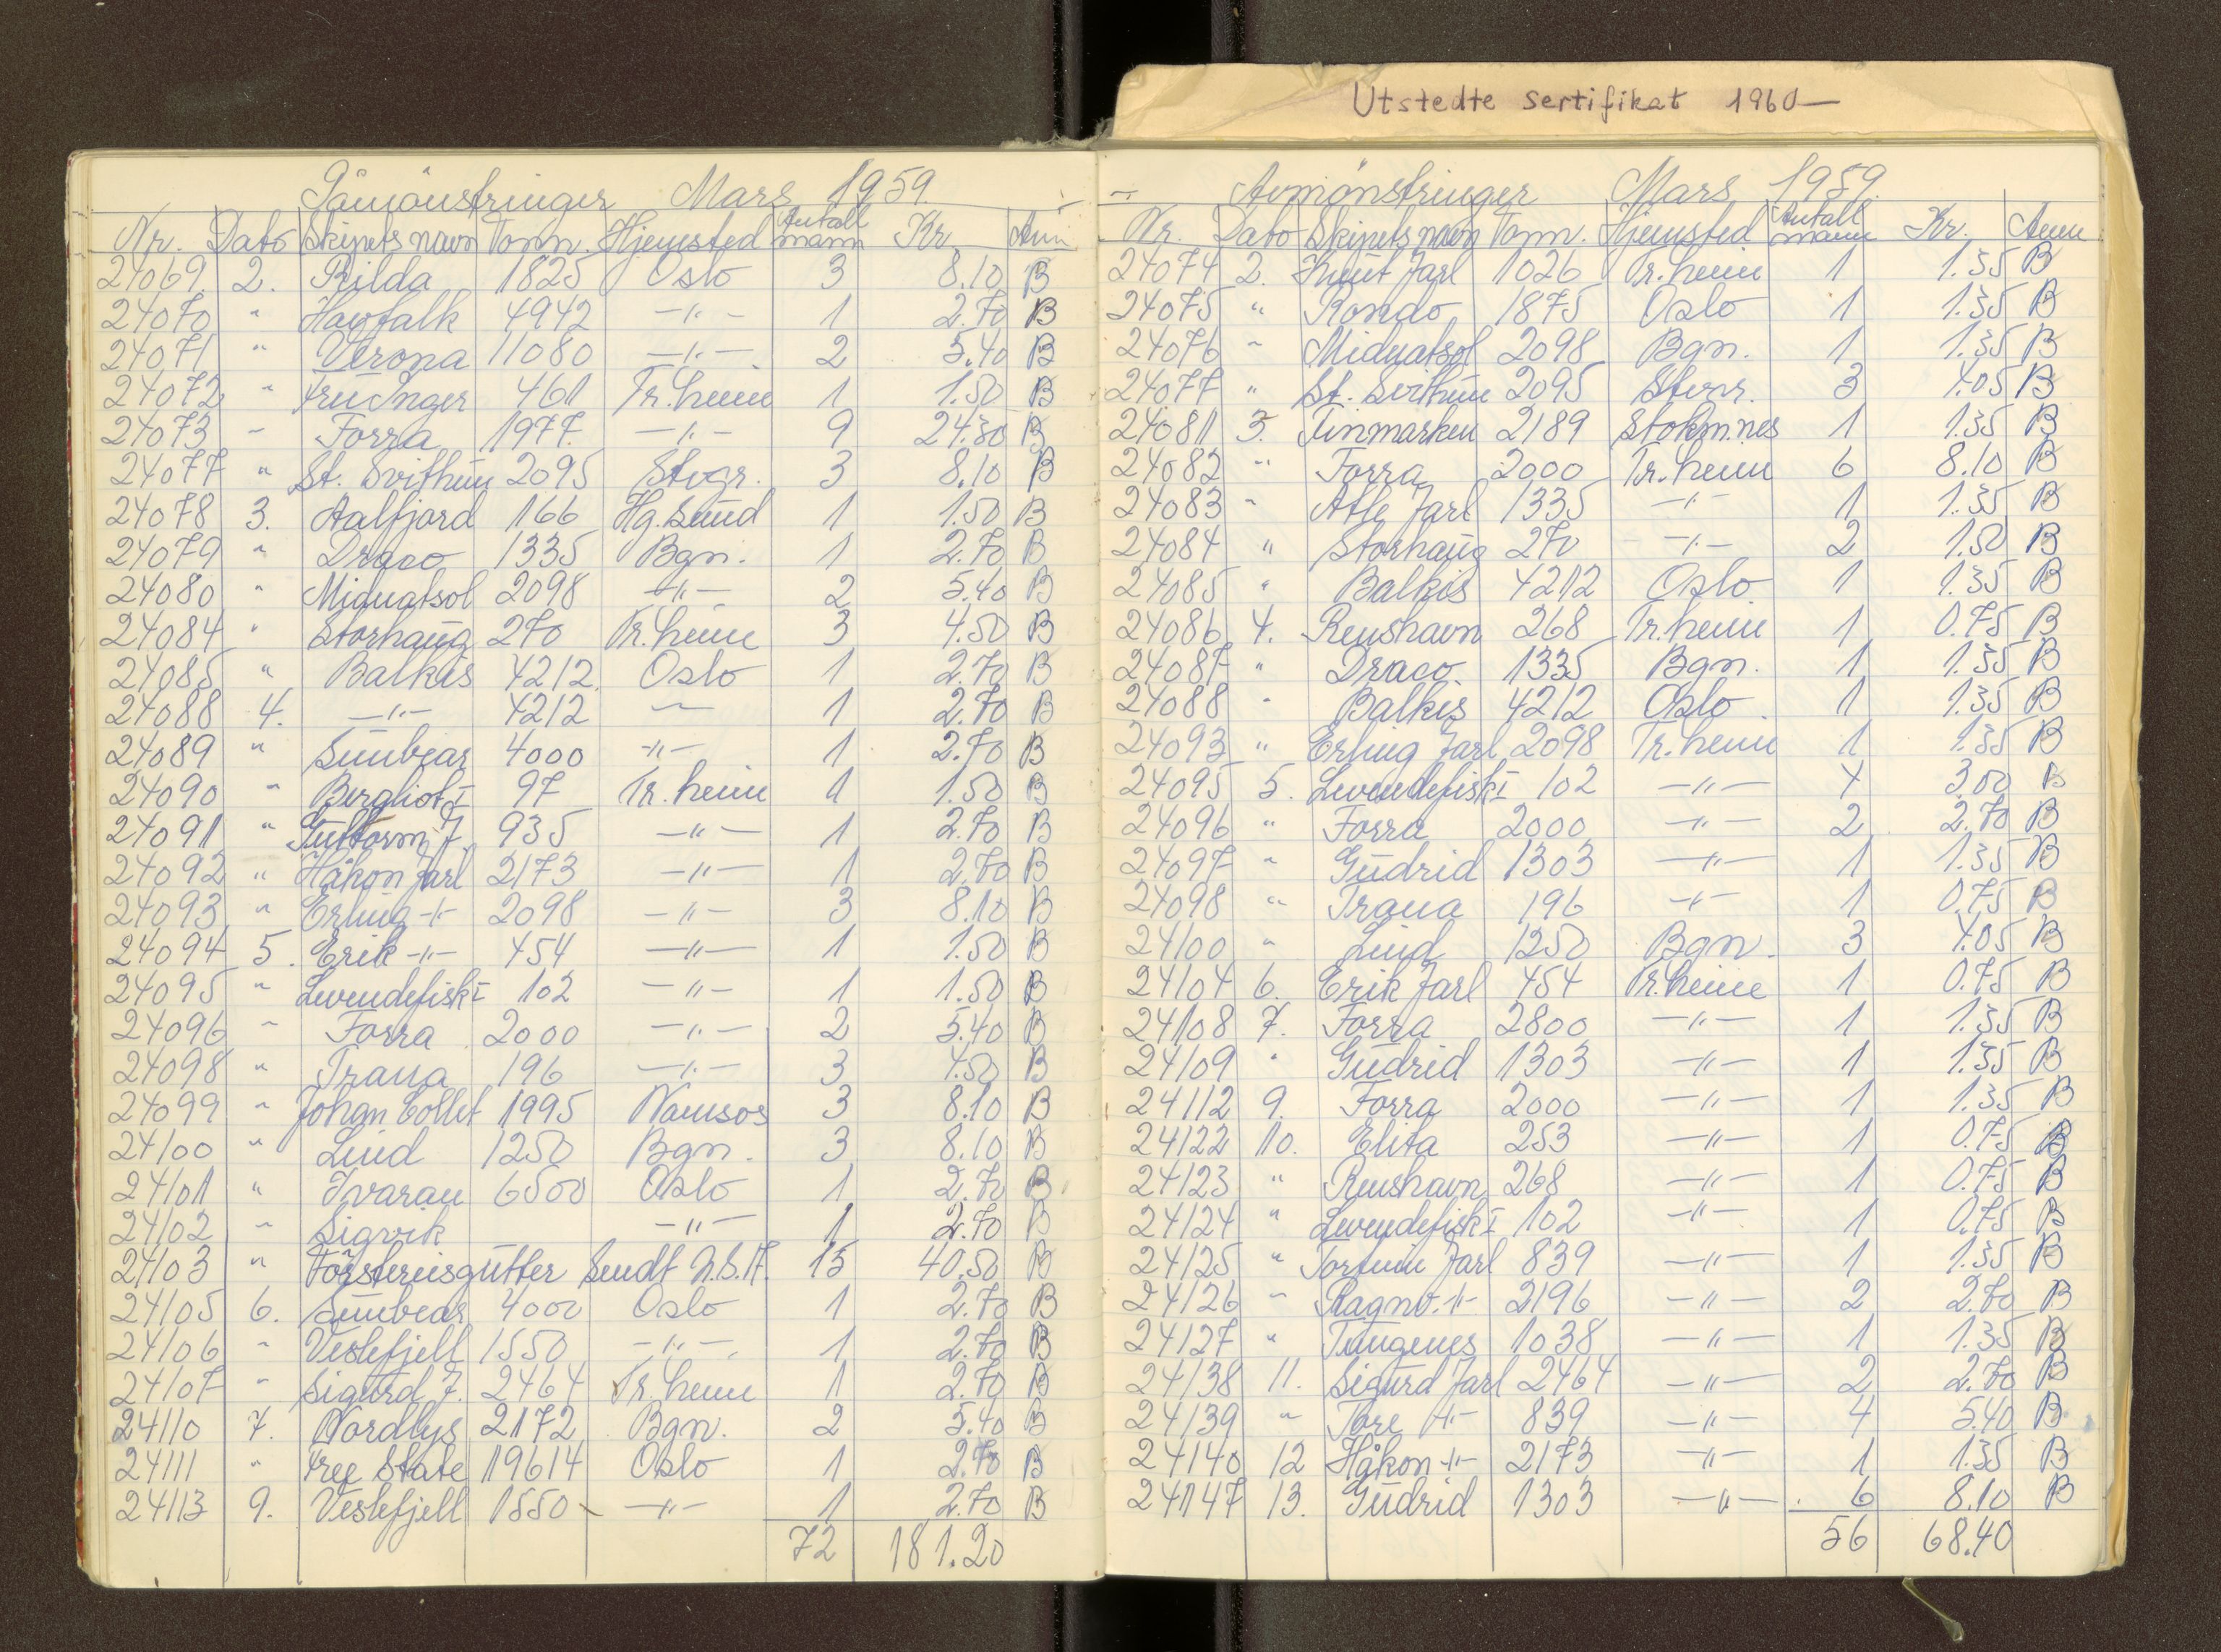 Utstedte sertifikat 1960—
Påmönstringer Mars 1959.
Nr. Dato Skipets navn Tonn. Hjemsted Antall mann Kr. Anm
24069. 2. Rilda 1825 Oslo 3 8.10 B
24070 " Havfalk 4942 —"— 1 2.70 B
24071 " Verona 11080 —"— 2 5.40 B
24072 " Fru Inger 461 Tr.heim 1 1.50 B
24073 " Forra 1977. —"— 9 24.30 B
24077 " St. Svithun 2095 Stvgr. 3 8.10 B
24078 3. Aalfjord 166 Hg.sund 1 1.50 B
24079 " Draco 1335 Bgn. 1 2.70 B
24080 " Midnatsol 2098 —"— 2 5.40 B
24084 " Storhaug 270 Tr.heim 3 4.50 B
24085 " Balkis 4212. Oslo 1 2.70 B
24088 4. —"— 4212 — 1 2.70 B
24089 " Sunbear 4000 —"— 1 2.70 B
24090 " Bergliot I 97 Tr.heim 1 1.50 B
24091 " Guttorm J. 935 —"— 1 2.70 B
24092 " Håkon Jarl 2173 —"— 1 2.70 B
24093 " Erling —"— 2098 —"— 3 8.10 B
24094 5. Erik —"— 454 —"— 1 1.50 B
24095 " Levendefisk I 102 —"— 1 1.50 B
24096 " Forra 2000 —"— 2 5.40 B
24098 " Trana 196 —"— 3 4.50 B
24099 " Johan Collet 1995 Namsos 3 8.10 B
24100 " Lind 1250 Bgn. 3 8.10 B
24101 " Ivaran 6500 Oslo 1 2.70 B
24102 " Sigvik —"— 1 2.70 B
24103 " Förstereisgutter Sendt 15 40.50 B
24105 6. Sunbear 4000 Oslo 1 2.70 B
24106 " Veslefjell 1550 —"— 1 2.70 B
24107 " Sigurd J. 2464 Tr.heim 1 2.70 B
24110 7. Nordlys 2172 Bgn. 2 5.40 B
24111 " Free State 19614 Oslo 1 2.70 B
24113 9. Veslefjell 1550 —"— 1 2.70 B
72 181.20
Avmönstringer Mars 1959.
Nr. Dato Skipets navn Tonn. Hjemsted Antall mann Kr. Anm
24074 2. Knut Jarl 1026 Tr.heim 1 1.35 B
24075 " Rondo 1875 Oslo 1 1.35 B
24076 " Midnatsol 2098 Bgn. 1 1.35 B
24077 " St. Svithun 2095 Stvgr. 3 4.05 B
24081 3. Finmarken 2189 Stokm.nes 1 1.35 B
24082 " Forra 2000 Tr.heim 6 8.10 B
24083 " Atle Jarl 1335 —"— 1 1.35 B
24084 " Storhaug 270 —"— 2 1.50 B
24085 " Balkis 4212 Oslo 1 1.35 B
24086 4. Renshavn 268 Tr.heim 1 0.75 B
24087 " Draco 1335 Bgn. 1 1.35 B
24088 " Balkis 4212 Oslo 1 1.35 B
24093 " Erling Jarl 2098 Tr.heim 1 1.35 B
24095 5. Levendefisk I 102 —"— 4 3.00 B
24096 " Forra 2000 —"— 2 2.70 B
24097 " Gudrid 1303 —"— 1 1.35 B
24098 " Trana 196 —"— 1 0.75 B
24100 " Lind 1250 Bgn. 3 4.05 B
24104 6. Erik Jarl 454 Tr.heim 1 0.75 B
24108 7. Forra 2800 —"— 1 1.35 B
24109 " Gudrid 1303 —"— 1 1.35 B
24112 9. Forra 2000 —"— 1 1.35 B
24122 10. Elita 253 —"— 1 0.75 B
24123 " Renshavn 268 —"— 1 0.75 B
24124 " Levendefisk I 102 —"— 1 0.75 B
24125 " Torfinn Jarl 839 —"— 1 1.35 B
24126 " Ragnv. —"— 2196 —"— 2 2.70 B
24127 " Tungenes 1038 —"— 1 1.35 B
24138 11. Sigurd Jarl 2464 —"— 2 2.70 B
24139 " Tore —"— 839 —"— 4 5.40 B
24140 12 Håkon —"— 2173 —"— 1 1.35 B
24147 13. Gudrid 1303 —"— 6 8.10 B
56 68.40